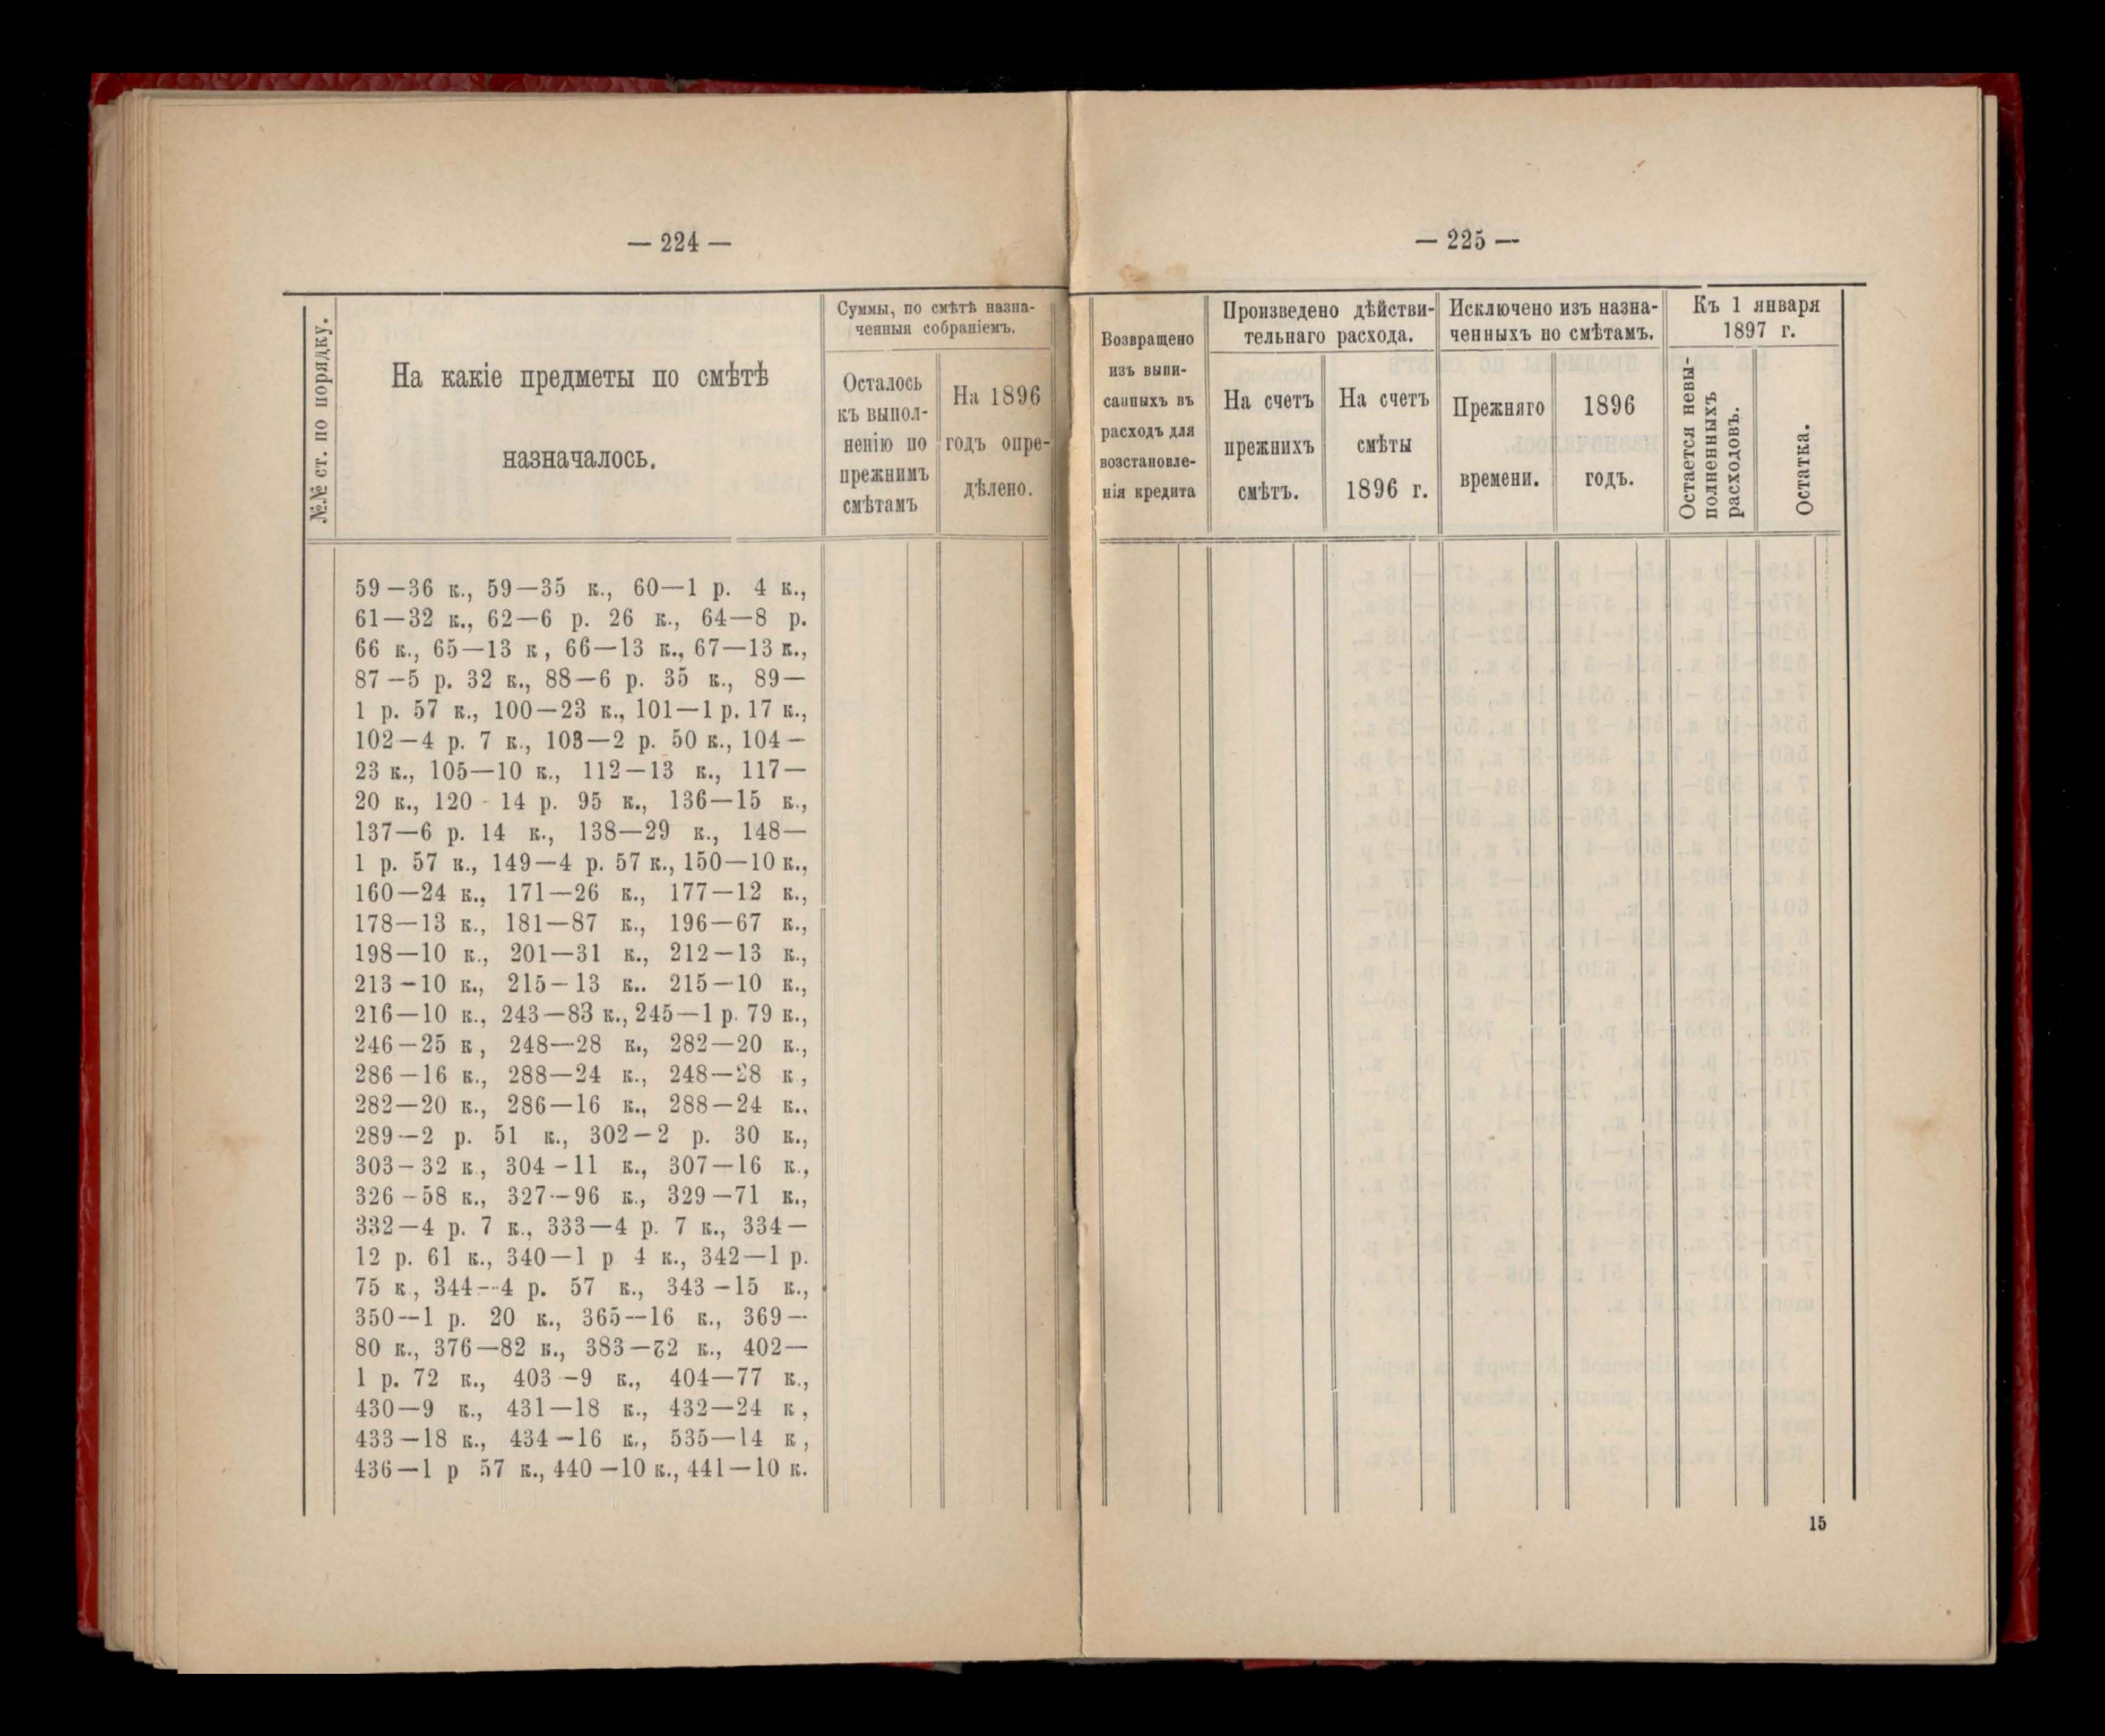 — 224 —
№№ ст. по порядку.
На какіе предметы по смѣтѣ
назначалось.
Суммы, по смѣтѣ назна-
ченныя собраніемъ.
Осталось
къ выпол-
ненію по
прежнимъ
смѣтамъ
На 1896
годъ опре-
дѣлено.
59—36 к., 59—35 к., 60—1 р. 4 к.,
61—32 к., 62—6 р. 26 к., 64—8 р.
66 к., 65—13 к, 66—13 к., 67—13 к.,
87—5 р. 32 к., 88—6 р. 35 к., 89—
1 р. 57 к., 100—23 к., 101—1 р. 17 к.,
102—4 р. 7 к., 103—2 р. 50 к., 104—
23 к., 105—10 к., 112—13 к., 117—
20 к., 120-14 р. 95 к., 136—15 к.,
137—6 р. 14 к., 138—29 к., 148—
1 р. 57 к., 149—4 р. 57 к., 150—10 к.,
160—24 к., 171—26 к., 177—12 к.,
178—13 к., 181—87 к., 196—67 к.,
198—10 к., 201—31 к., 212—13 к.,
213—10 к., 215—13 к.. 215—10 к.,
216—10 к., 243—83 к., 245—1 р. 79 к.,
246—25 к, 248—28 к., 282—20 к.,
286—16 к., 288—24 к., 248—28 к.,
282—20 к., 286—16 к., 288—24 к.,
289—2 р. 51 к., 302—2 р. 30 к.,
303—32 к., 304—11 к., 307—16 к.,
326—58 к., 327—96 к., 329—71 к.,
332—4 р. 7 к., 333—4 р. 7 к., 334—
12 р. 61 к., 340—1 р 4 к., 342—1 р.
75 к., 344—4 р. 57 к., 343—15 к.,
350—1 р. 20 к., 365—16 к., 369—
80 к., 376—82 к., 383— к., 402—
1 р. 72 к., 403—9 к., 404—77 к.,
430—9 к., 431—18 к., 432—24 к,
433—18 к., 434—16 к., 535—14 к,
436—1 р 57 к., 440—10 к., 441—10 к.
— 225 —
Возвращено
изъ выпи-
санныхъ въ
расходъ для
возстановле-
нія кредита
Произведено дѣйстви-
тельнаго расхода.
На счетъ
прежнихъ
смѣтъ.
На счетъ
смѣты
1896 г.
Исключено изъ назна-
ченныхъ по смѣтамъ.
Прежняго
времени.
1896
годъ.
Къ 1 января
1897 г.
Остается невы-
полненныхъ
расходовъ.
Остатка.
15